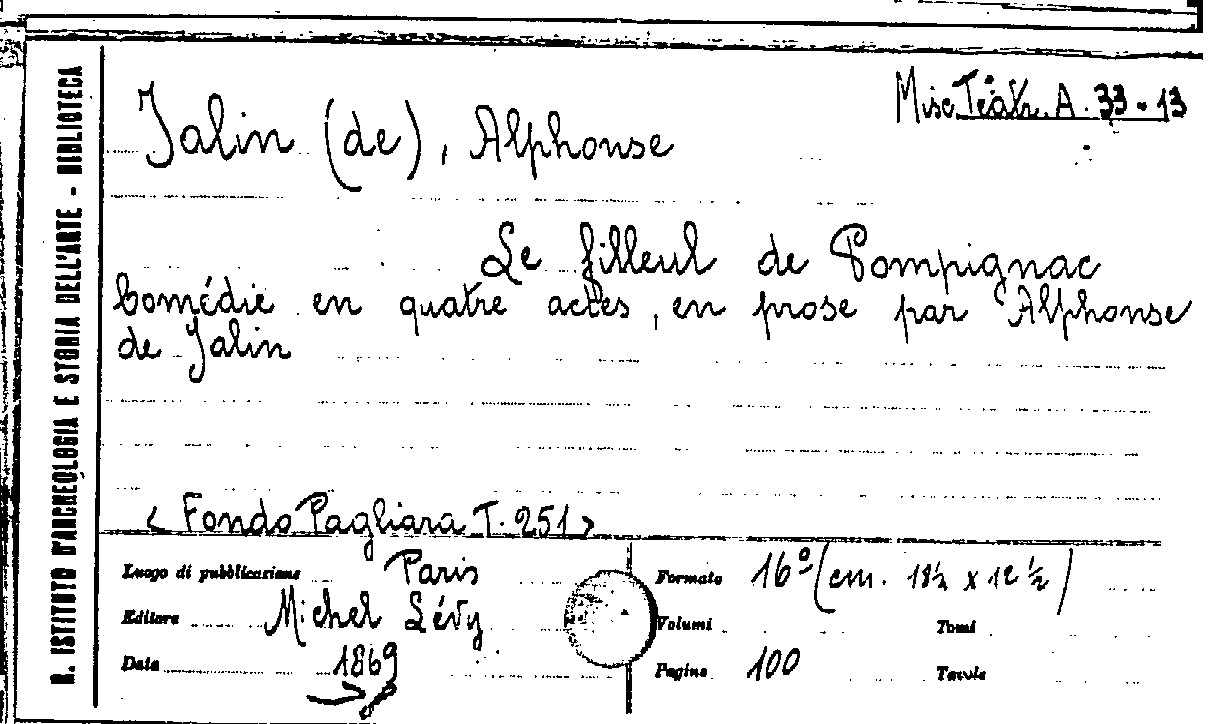 R. ISTITUTO D'ARCHEOLOGIA E STORIA DELL'ARTE - BIBLIOTECA
Misc. Teatr. A. 33-13
Jalin (de), Alphonse
Le filleul de Pompignac
Comédie en quatre actes, en prose par Alphonse
de Jalin
< Fondo Pagliara T. 251 >
Luogo di pubblicazione Paris
Editore Michel Lévy
Data 1869
Formato 16º (cm. 18½ x 12½)
Volumi Tomi
Pagine 100 Tavole